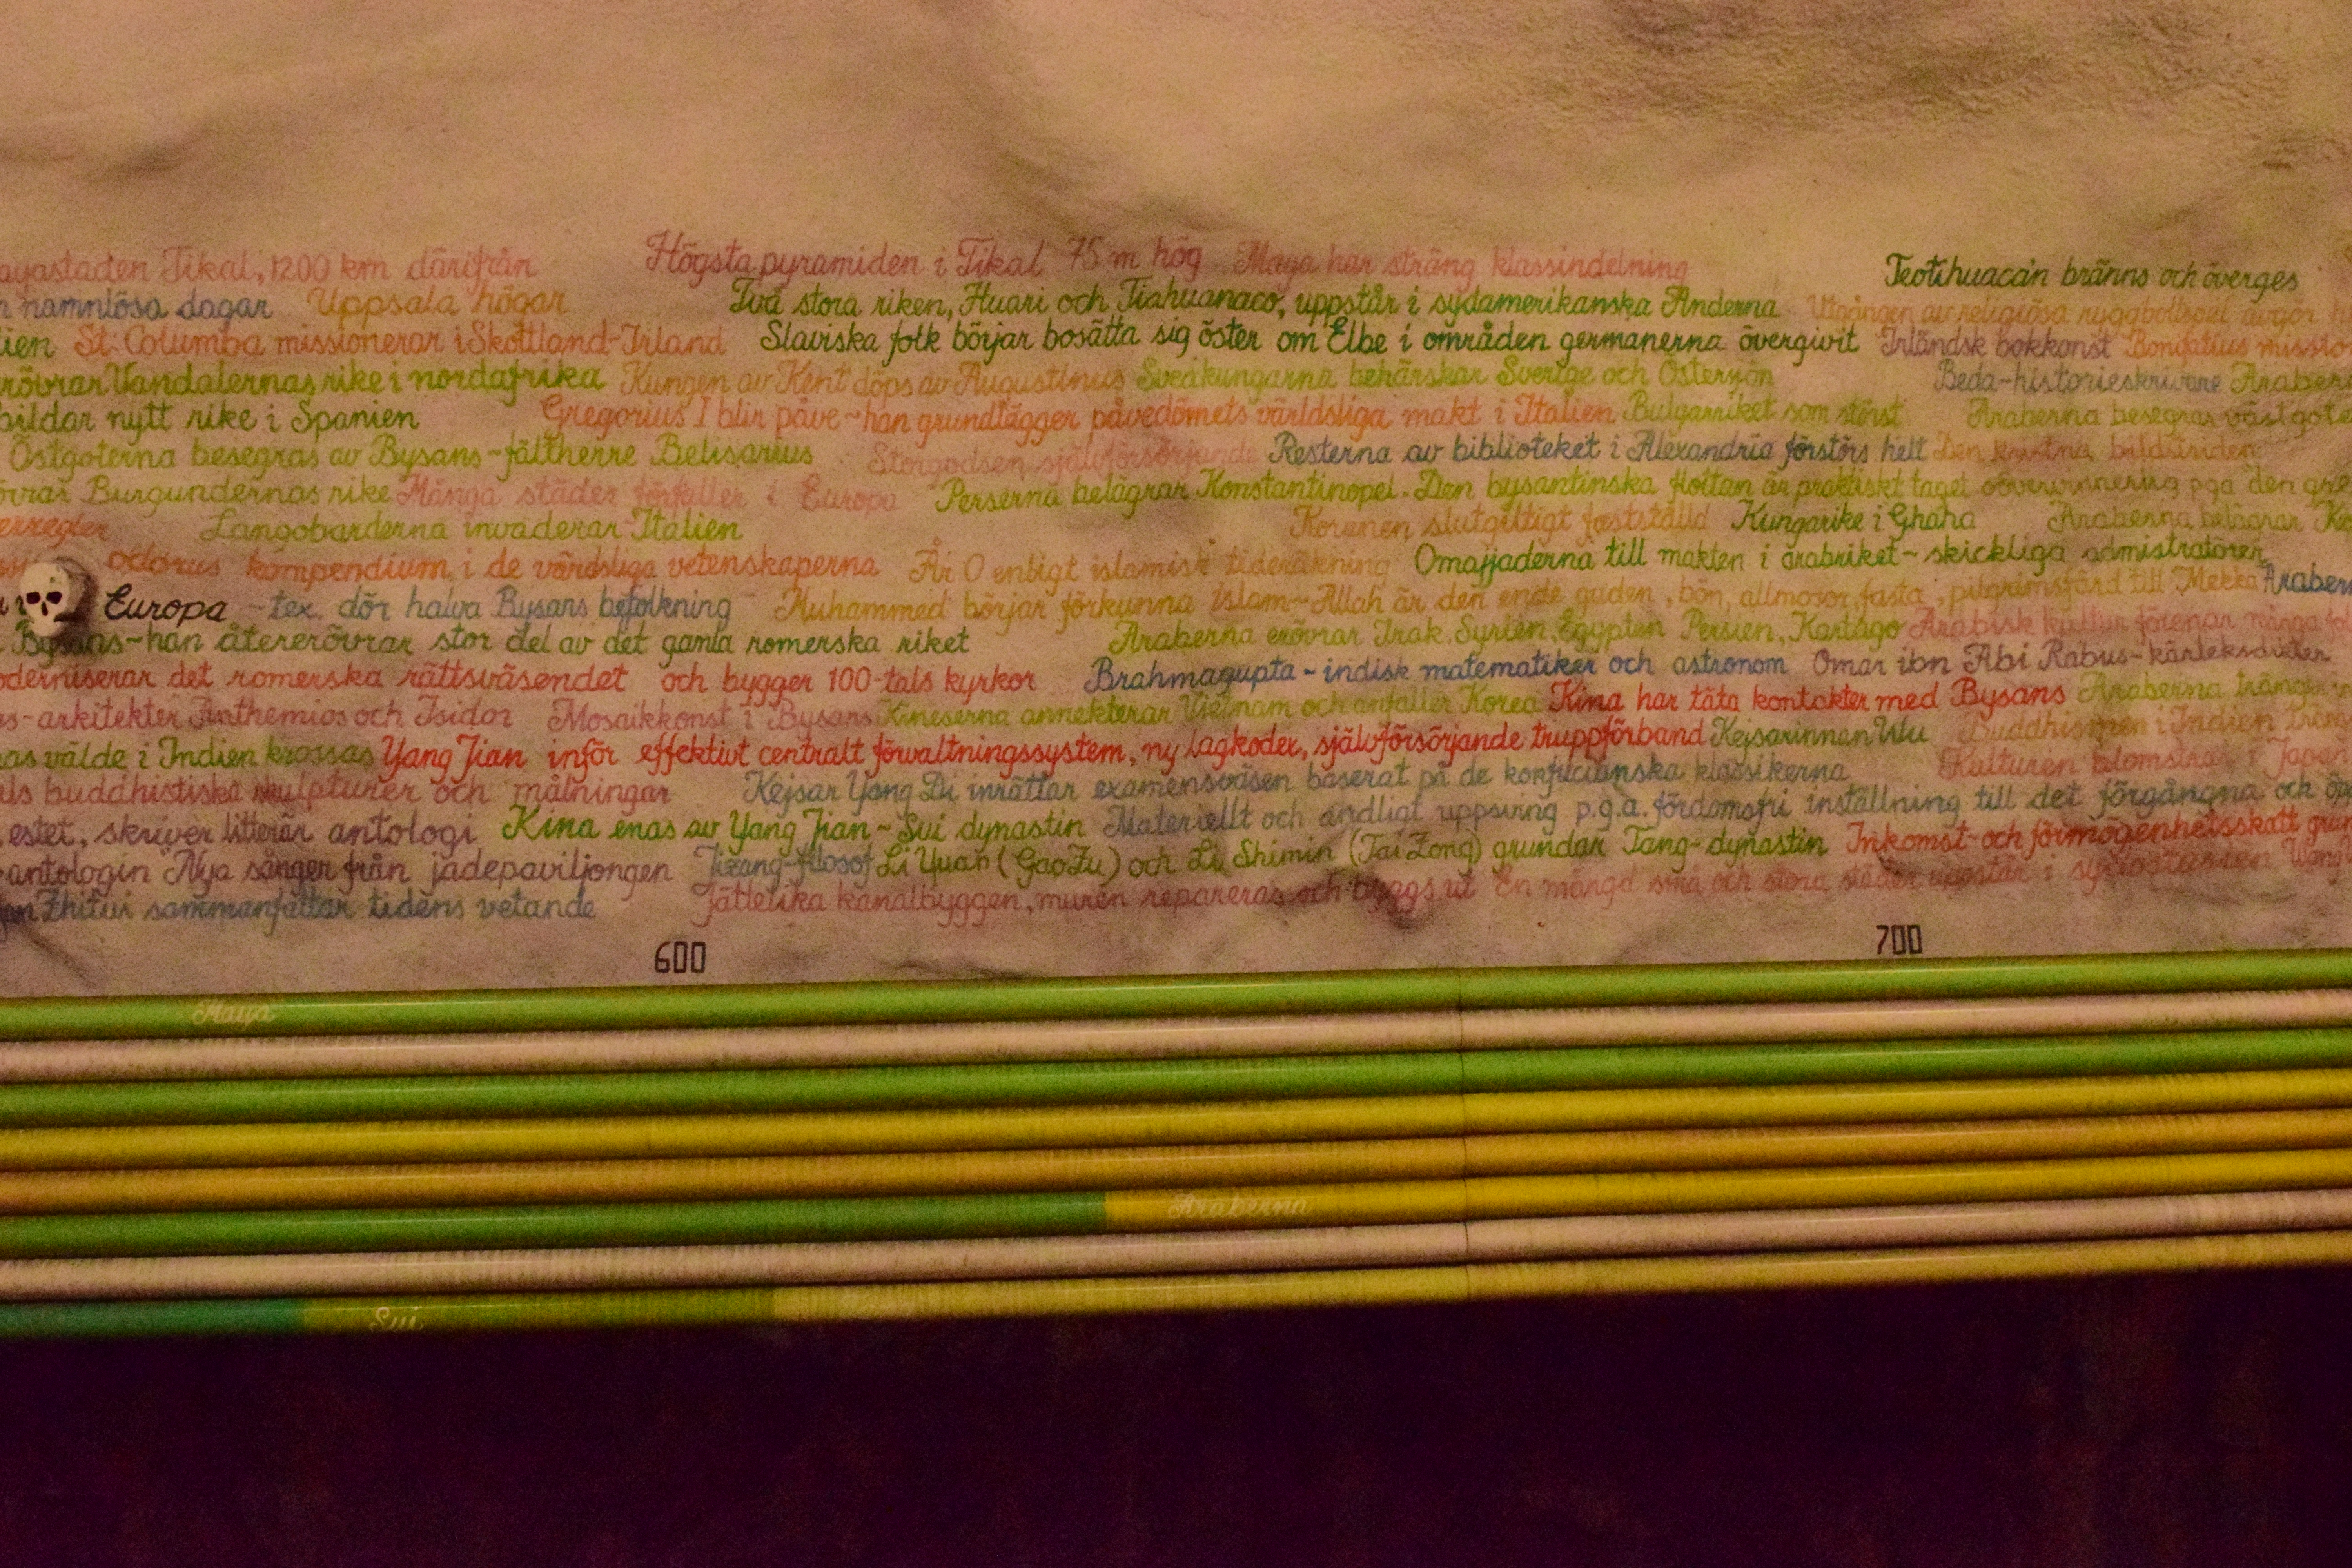 Tikal, 1200 km därifrån Högsta pyramiden i Tikal 75 m hög Maya har sträng klassindelning Teotihuacán bränns och överges
namnlösa dagar Uppsala högar Två stora riken, Huari och Tiahuanaco, uppstår i sydamerikanska Anderna Utgången av religiösa avgör
St. Columba missionerar i Skottland-Irland Slaviska folk börjar bosätta sig öster om Elbe i områden germanerna övergivit Irländsk bokkonst Bonifatius
Vandalernas rike i nordafrika Kungen av Kent döps av Augustinus Sveakungarna behärskar Sverige och Österjön Beda-historieskrivare
bildar nytt rike i Spanien Gregorius I blir påve~han grundlägger påvedömets världsliga makt i Italien Bulgarriket som störst Araberna besegras
Östgoterna besegras av Bysans-fältherre Belisarius Storgodsen självförsörjande Resterna av biblioteket i Alexandria förstörs helt Den kristna bildstriden
Burgundernas rike Många städer förfaller i Europa Perserna belägrar Konstantinopel. Den bysantinska flottan är praktiskt taget oövervinnerlig pga den
Langobarderna invaderar Italien Koranen slutgiltigt fastställd Kungarike i Ghana Araberna belägrar
kompendium i de världsliga vetenskaperna År 0 enligt islamisk tideräkning Omajjaderna till makten i arabriket~skickliga admistratörer
Europa - tex. dör halva Bysans befolkning Muhammed börjar förkunna islam~Allah är den ende guden, bön, allmosor, fasta, pilgrimsfärd till Mekka
Bysans~han återerövrar stor del av det gamla romerska riket Araberna erövrar Irak, Syrien, Egypten Persien, Kartago Arabisk kultur förenar många
det romerska rättsväsendet och bygger 100-tals kyrkor Brahmagupta - indisk matematiker och astronom Omar ibn Abi Rabus-kärleksdikter
arkitekter Anthemios och Isidor Mosaikkonst i Bysans Kineserna annekterar Vietnam och anfaller Korea Kina har täta kontakter med Bysans Araberna tränger
välde i Indien krossas Yang Jian inför effektivt centralt förvaltningssystem, ny lagkodex, självförsörjande truppförband Kejsarinnan Wu Buddhismen i Indien
buddhistiska skulpturer och målningar Kejsar Yang Di inrättar examensväsen baserat på de konfucianska klassikerna Kulturen blomstrar i
estet, skriver litterär antologi Kina enas av Yang Jian~Sui dynastin Materiellt och andligt uppsving p.g.a. fördomsfri inställning till det förgångna och
antologin Nya sånger från jadepaviljongen Jizang-filosof Li Yuan (Gao Zu) och Li Shimin (Tai Zong) grundar Tang-dynastin Inkomst-och förmögenhetsskatt
Zhitui sammanfattar tidens vetande Jättelika kanalbyggen, muren repareras och byggs ut En mängd små och stora städer uppstår i
600 700
Maya
Araberna
Sui